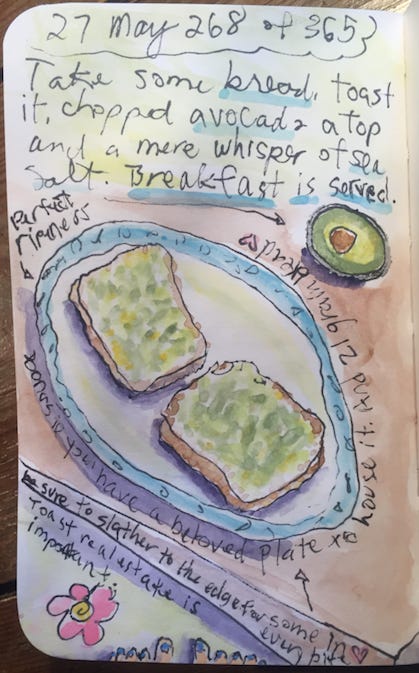 27 May 268 of 365
Take some bread, toast
it, chopped avocado atop
and a mere whisper of sea
Salt. Breakfast is served.
Perfect
ripeness
have a beloved plate
house it. And 21 grain bread
Be sure to slather to the edge for some in
every bite
Toast real estate is
important.